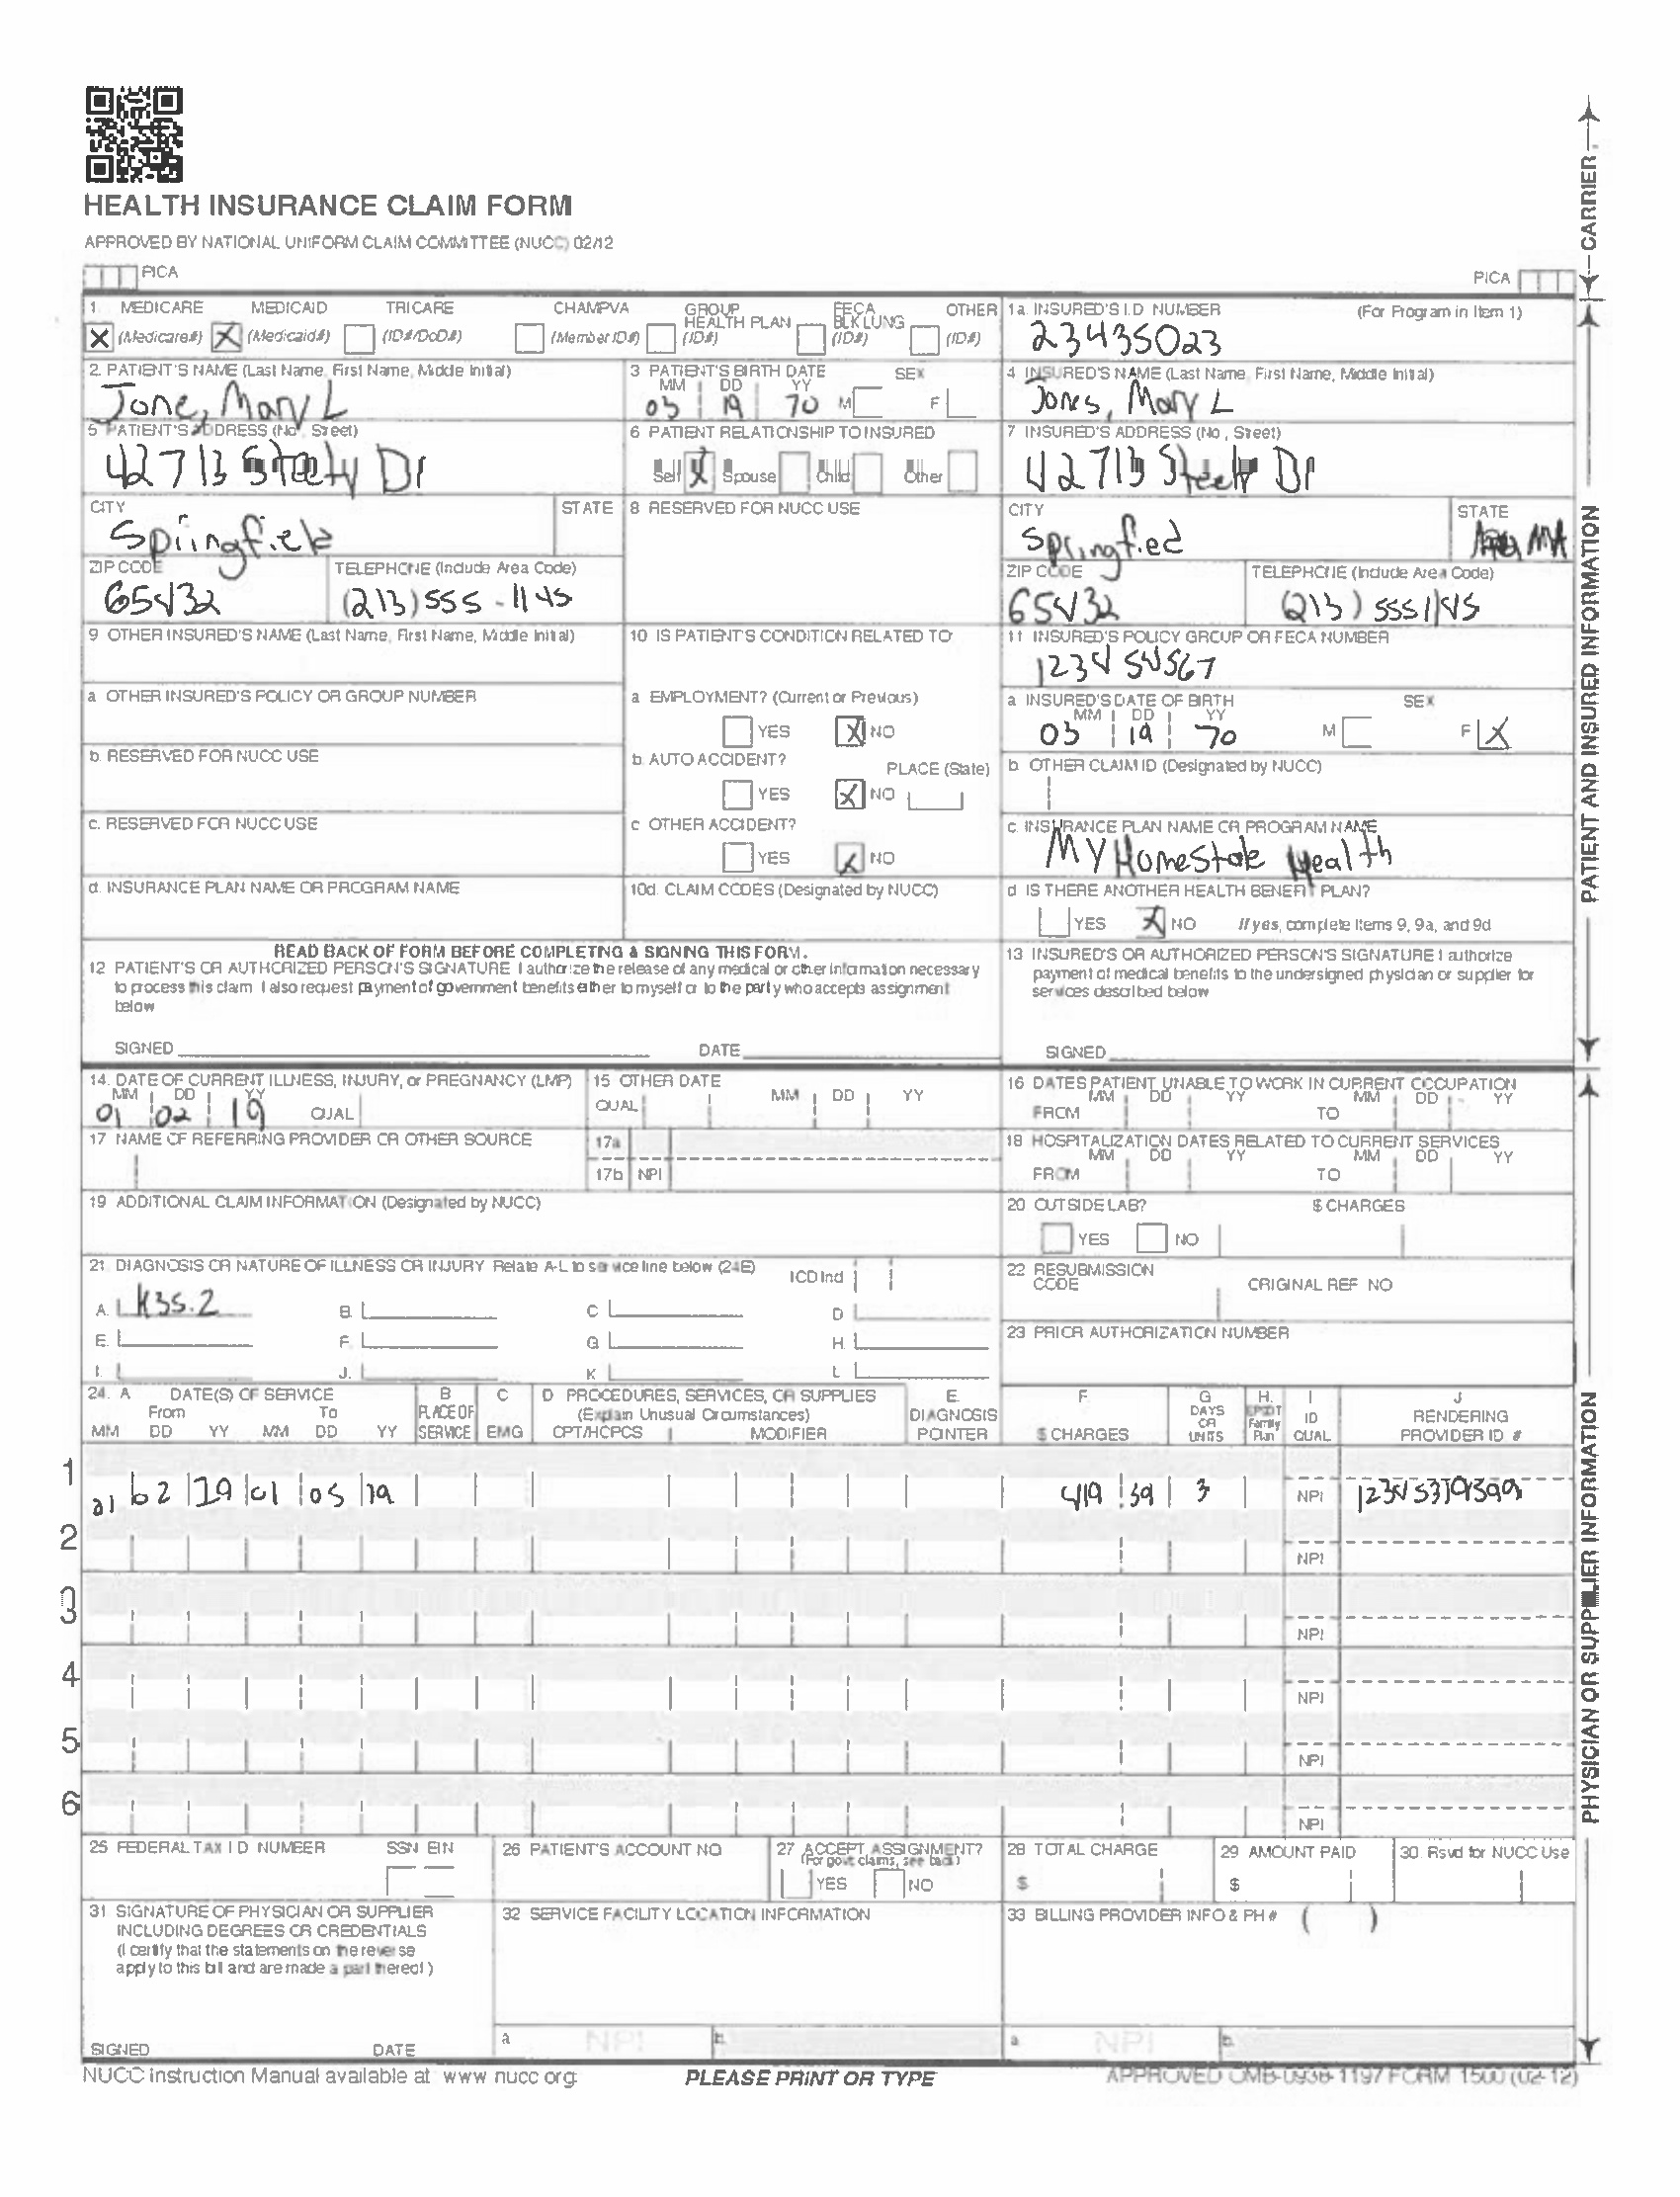 HEALTH INSURANCE CLAIM FORM
APPROVED BY NATIONAL UNIFORM CLAIM COMMITTEE (NUCC) 02/12
PICA
PICA
CARRIER
1. MEDICARE MEDICAID TRICARE CHAMPVA GROUP HEALTH PLAN FECA BLK LUNG OTHER
X (Medicare#) X (Medicaid#) (ID#/DoD#) (Member ID#) (ID#) (ID#) (ID#)
1a. INSURED'S I.D. NUMBER (For Program in Item 1)
23435023
2. PATIENT'S NAME (Last Name, First Name, Middle Initial)
Jone, Mary L
3 PATIENT'S BIRTH DATE SEX
MM DD YY
03 19 70 M F
4 INSURED'S NAME (Last Name, First Name, Middle Initial)
Jones, Mary L
5 PATIENT'S ADDRESS (No, Street)
42713 Steety Dr
6 PATIENT RELATIONSHIP TO INSURED
Self X Spouse Child Other
7 INSURED'S ADDRESS (No, Street)
42713 Dr
CITY STATE
Springfield
8 RESERVED FOR NUCC USE
CITY STATE
Springfied MA
ZIP CODE TELEPHONE (Include Area Code)
65432 (213) 555-1145
ZIP CODE TELEPHONE (Include Area Code)
65432 (213) 5551145
9 OTHER INSURED'S NAME (Last Name, First Name, Middle Initial)
10 IS PATIENT'S CONDITION RELATED TO
11 INSURED'S POLICY GROUP OR FECA NUMBER
123454567
a OTHER INSURED'S POLICY OR GROUP NUMBER
a EMPLOYMENT? (Current or Previous)
YES X NO
a INSURED'S DATE OF BIRTH SEX
MM DD YY
03 19 70 M F X
b. RESERVED FOR NUCC USE
b. AUTO ACCIDENT? PLACE (State)
YES X NO
b. OTHER CLAIM ID (Designated by NUCC)
c. RESERVED FOR NUCC USE
c OTHER ACCIDENT?
YES X NO
c. INSURANCE PLAN NAME OR PROGRAM NAME
My Homestate Health
d. INSURANCE PLAN NAME OR PROGRAM NAME
10d. CLAIM CODES (Designated by NUCC)
d IS THERE ANOTHER HEALTH BENEFIT PLAN?
YES X NO If yes, complete Items 9, 9a, and 9d
READ BACK OF FORM BEFORE COMPLETING & SIGNING THIS FORM.
12 PATIENT'S OR AUTHORIZED PERSON'S SIGNATURE I authorize the release of any medical or other information necessary
to process this claim I also request payment of government benefits either to myself or to the party who accepts assignment
below
SIGNED DATE
13 INSURED'S OR AUTHORIZED PERSON'S SIGNATURE I authorize
payment of medical benefits to the undersigned physician or supplier for
services described below
SIGNED
PATIENT AND INSURED INFORMATION
14. DATE OF CURRENT ILLNESS, INJURY, or PREGNANCY (LMP)
MM DD YY
01 02 19 QUAL
15 OTHER DATE
QUAL MM DD YY
16 DATES PATIENT UNABLE TO WORK IN CURRENT OCCUPATION
MM DD YY MM DD YY
FROM TO
17 NAME OF REFERRING PROVIDER OR OTHER SOURCE
17a
17b NPI
18 HOSPITALIZATION DATES RELATED TO CURRENT SERVICES
MM DD YY MM DD YY
FROM TO
19 ADDITIONAL CLAIM INFORMATION (Designated by NUCC)
20 OUTSIDE LAB? $ CHARGES
YES NO
21 DIAGNOSIS OR NATURE OF ILLNESS OR INJURY Relate A-L to service line below (24E) ICD Ind
A. K35.2 B. C D
E. F. G H.
I. J. K L
22 RESUBMISSION CODE ORIGINAL REF NO
23 PRIOR AUTHORIZATION NUMBER
24. A DATE(S) OF SERVICE B C D PROCEDURES, SERVICES, OR SUPPLIES E. F G H. I J
From To PLACE OF (Explain Unusual Circumstances) DIAGNOSIS DAYS OR UNITS EPSDT Family Plan ID QUAL RENDERING
MM DD YY MM DD YY SERVICE EMG CPT/HCPCS MODIFIER POINTER $ CHARGES PROVIDER ID #
1 01 02 19 01 05 19 419 39 3 NPI
2 NPI
3 NPI
4 NPI
5 NPI
6 NPI
25 FEDERAL TAX I D NUMBER SSN EIN
26 PATIENT'S ACCOUNT NO
27 ACCEPT ASSIGNMENT?
(For govt claims, see back)
YES NO
28 TOTAL CHARGE
$
29 AMOUNT PAID
$
30. Rsvd for NUCC Use
31 SIGNATURE OF PHYSICIAN OR SUPPLIER
INCLUDING DEGREES OR CREDENTIALS
(I certify that the statements on the reverse
apply to this bill and are made a part thereof)
SIGNED DATE
32 SERVICE FACILITY LOCATION INFORMATION
a NPI b.
33 BILLING PROVIDER INFO & PH # ( )
a NPI b.
PHYSICIAN OR SUPPLIER INFORMATION
NUCC Instruction Manual available at www nucc org
PLEASE PRINT OR TYPE
APPROVED OMB-0938-1197 FORM 1500 (02-12)